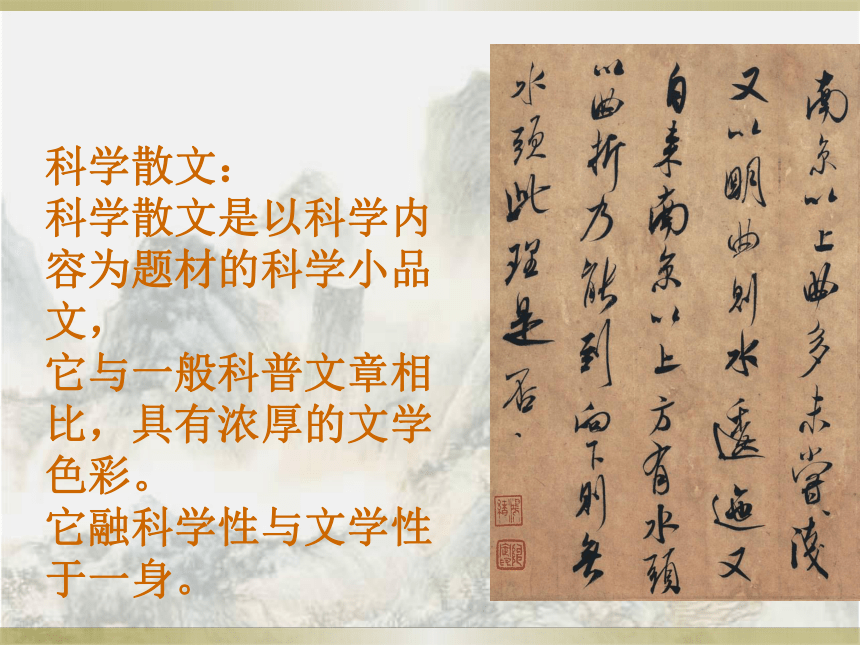 科学散文：
科学散文是以科学内
容为题材的科学小品
文，
它与一般科普文章相
比，具有浓厚的文学
色彩。
它融科学性与文学性
于一身。
南京以上曲多未嘗淺
又以明曲則水透迤又
自来南京以上方有水頭
以曲折乃能到向下則無
水頭此理是否